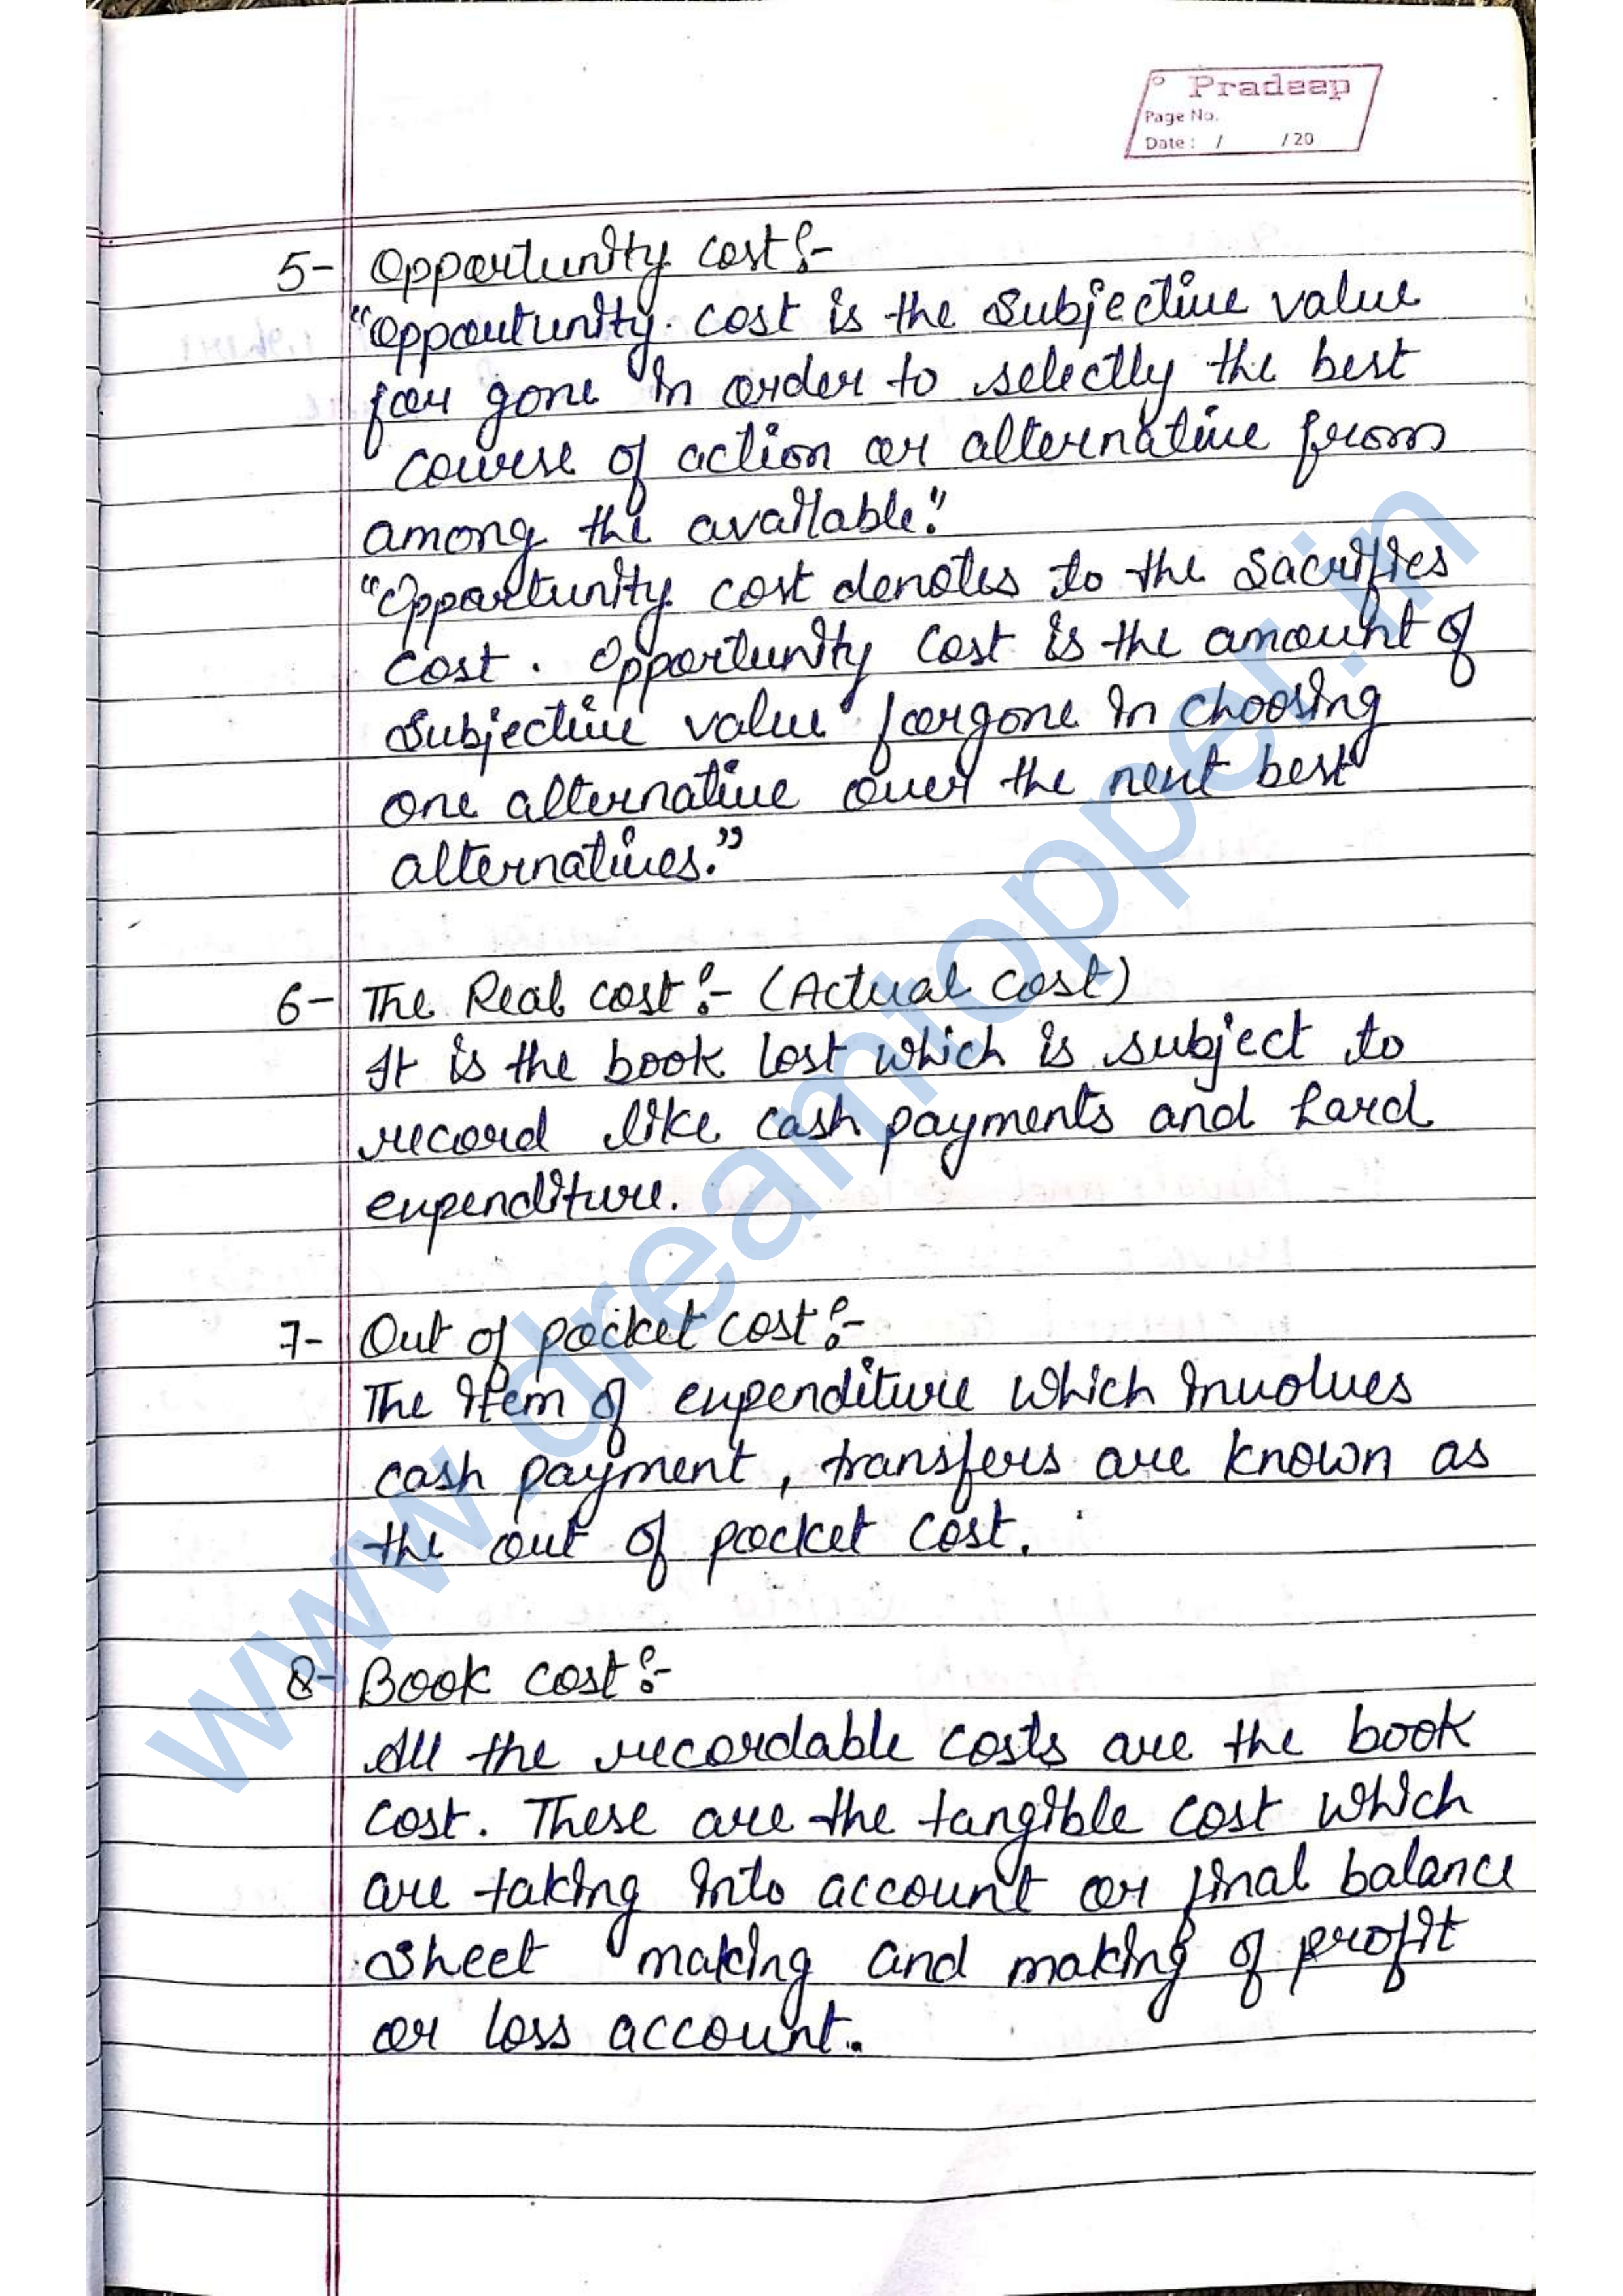 Pradeep
Page No.
Date : / /20
5- Opportunity cost :-
"Opportunity cost is the subjective value
for gone in order to selectly the best
course of action or alternative from
among the available."
"Opportunity cost denotes to the sacrifies
cost. Opportunity cost is the amount of
subjective value forgone in choosing
one alternative over the next best
alternatives."
6- The Real cost :- (Actual cost)
It is the book lost which is subject to
record like cash payments and hard
expenditure.
7- Out of pocket cost :-
The item of expenditure which involves
cash payment, transfers are known as
the out of pocket cost.
8- Book cost :-
All the recordable costs are the book
cost. These are the tangible cost which
are taking into account or final balance
sheet making and making of profit
or loss account.
www.dreamtopper.in